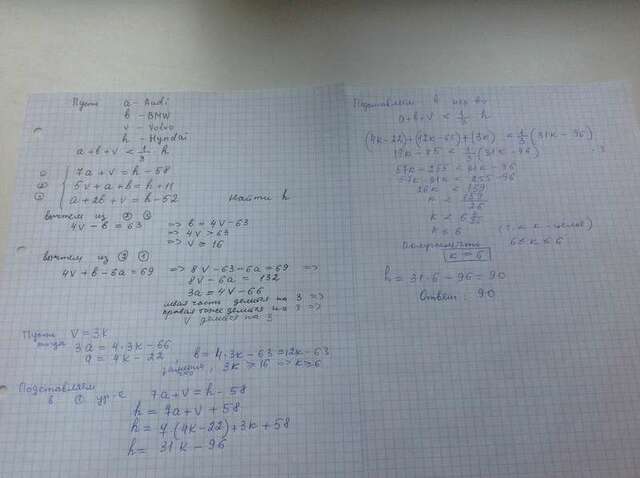 Пусть a - Audi
b - BMW
v - Volvo
h - Hyndai
a+b+v < 1/3 · h
① 7a+v = h-58
② 5v+a+b = h+11
③ a+2b+v = h-52
Найти h
вычтем из ② ③
4v-b = 63 => b = 4v-63
=> 4v > 63
=> v ≥ 16
вычтем из ② ①
4v+b-6a = 69 => 8v-63-6a = 69 =>
8v-6a = 132
3a = 4v-66
левая часть делится на 3 =>
правая тоже делится на 3 =>
v делится на 3
Пусть v = 3k
тогда 3a = 4·3k-66
a = 4k-22, b = 4·3k-63 = 12k-63
3k > 16 => k ≥ 6
Подставляем
в ① ур-е 7a+v = h-58
h = 7a+v+58
h = 7(4k-22)+3k+58
h = 31k-96
Подставляем в
a+b+v < 1/3 h
(4k-22)+(12k-63)+(3k) < 1/3(31k-96)
19k-85 < 1/3(31k-96) ·3
57k-255 < 31k-96
57k-31k < 255-96
26k < 159
k < 159/26
k ≤ 6 (т.к. k-целое)
6 ≤ k ≤ 6
k = 6
h = 31·6-96 = 90
Ответ: 90